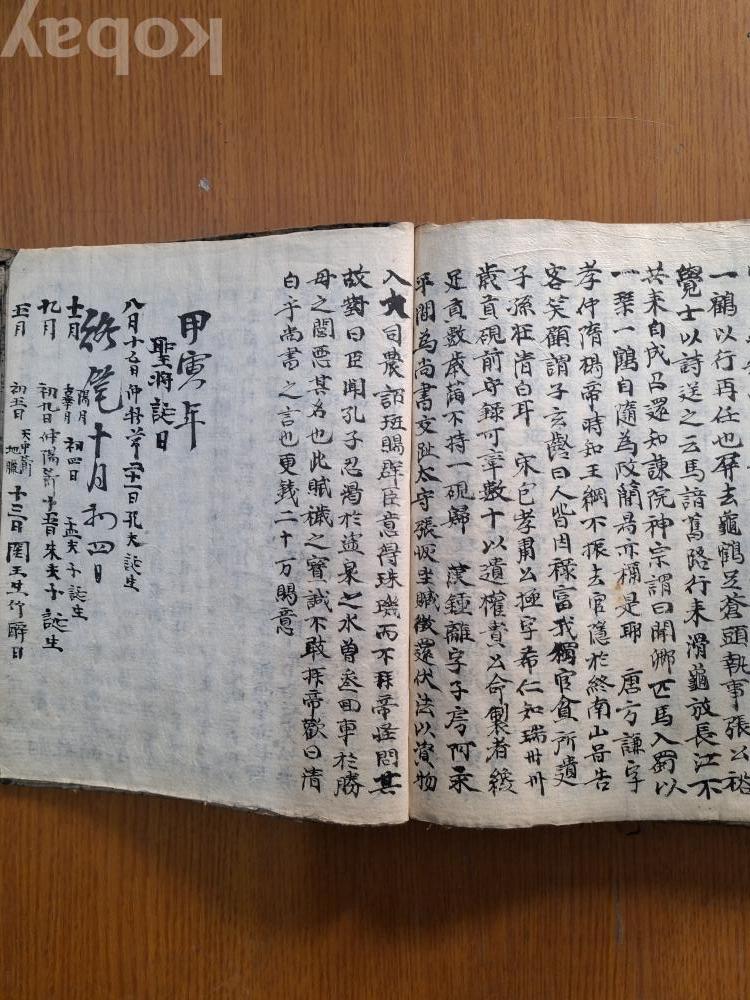 一鶴以行再任也屏去龜鶴止蒼頭執事張公
覺士以詩送之云馬諳舊路行來滑龜放長江不
共來自成呂還知諫院神宗謂曰聞卿匹馬入蜀以
一琴一鶴自隨為政簡易亦稱是耶 唐方謙字
孝仲隋楊帝時知王綱不振去官隱於終南山
客笑顧謂子玄齡曰人皆因祿富我獨官貧所遺
子孫在清白耳 宋包孝肅公拯字希仁知瑞州州
歲貢硯前守錄可章數十以遺權貴公命製者
足貢數歲滿不持一硯歸 漢鍾離字子房阿
平閒為尚書交趾太守張恢坐贓徵還伏法以資物
入大司農詔班賜群臣意得珠璣而不拜帝怪問其
故對曰臣聞孔子忍渴於盜泉之水曾參回車於勝
母之閭惡其名也此贓穢之寶誠不敢拜帝歎曰清
白乎尚書之言也更錢二十万賜意
甲寅年
聖將誕日
八月十五日仲秋 二十一日孔夫誕生
終筆十月初四日
十一月 陽月 初四日 孟夫子誕生
九月 初九日 重陽節 十五日朱夫子誕生
五月 初五日 天中節 地臘 十三日關王生
Kobay